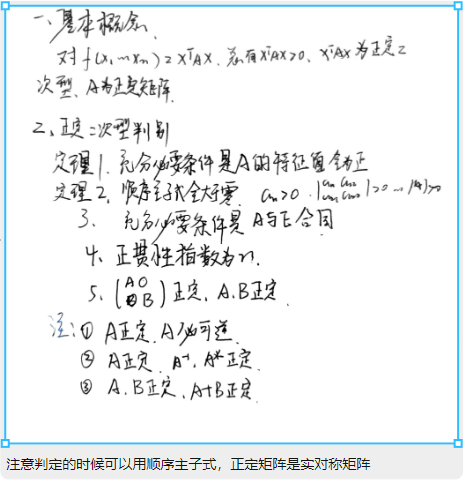 一、基本概念
对 f(x₁…xₙ)=xᵀAx, 总有xᵀAx>0, xᵀAx为正定二
次型、A为正定矩阵.
2、正定二次型判别
定理1.充分必要条件是A的特征值全为正
定理2. 顺序主子式全大于零. a₁₁>0 . |a₁₁ a₁₂ a₂₁ a₂₂|>0 … |A|>0
3. 充分必要条件是A与E合同
4. 正惯性指数为n.
5. (A O O B) 正定、A.B正定.
注:① A正定.A必可逆.
② A正定. A⁻¹, A*正定.
③ A.B正定、A+B正定.
注意判定的时候可以用顺序主子式，正定矩阵是实对称矩阵